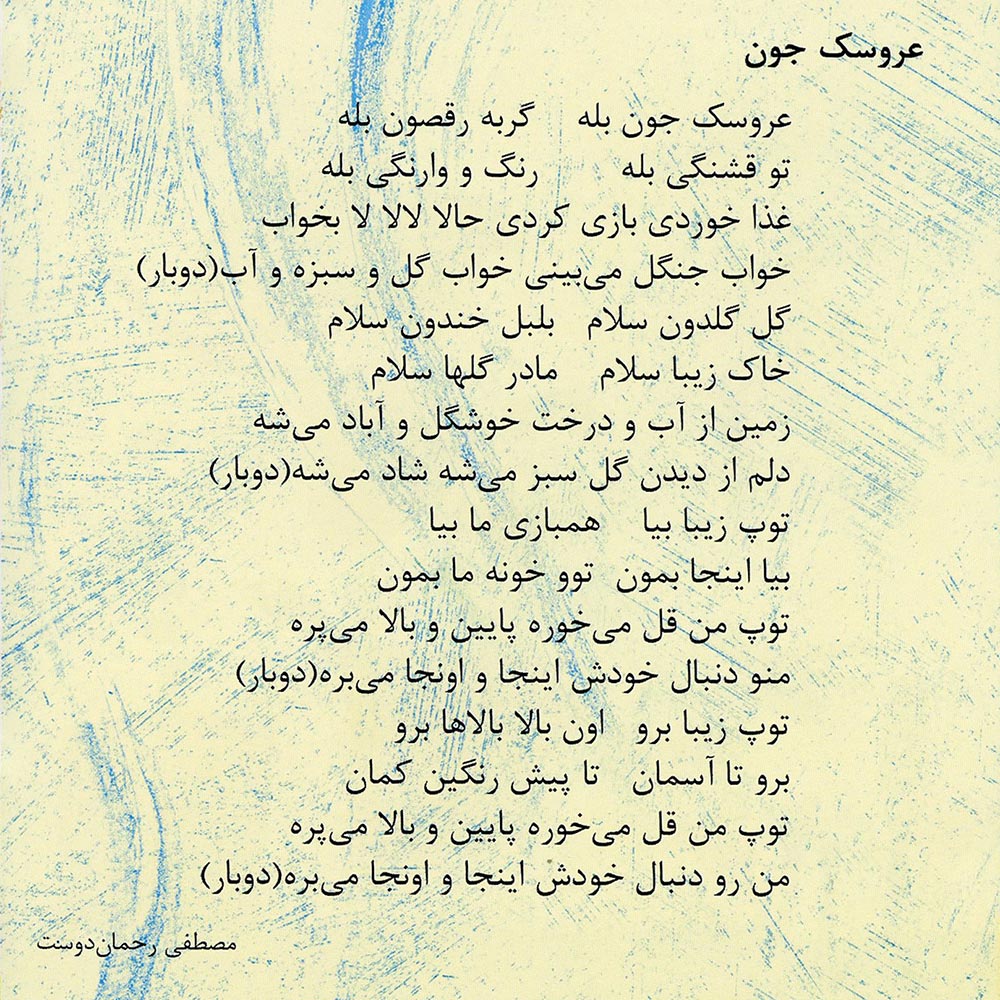 عروسک جون
عروسک جون بله گربه رقصون بله
تو قشنگی بله رنگ و وارنگی بله
غذا خوردی بازی کردی حالا لالا لا بخواب
خواب جنگل می‌بینی خواب گل و سبزه و آب(دوبار)
گل گلدون سلام بلبل خندون سلام
خاک زیبا سلام مادر گلها سلام
زمین از آب و درخت خوشگل و آباد می‌شه
دلم از دیدن گل سبز می‌شه شاد می‌شه(دوبار)
توپ زیبا بیا همبازی ما بیا
بیا اینجا بمون توو خونه ما بمون
توپ من قل می‌خوره پایین و بالا می‌پره
منو دنبال خودش اینجا و اونجا می‌بره(دوبار)
توپ زیبا برو اون بالا بالاها برو
برو تا آسمان تا پیش رنگین کمان
توپ من قل می‌خوره پایین و بالا می‌پره
من رو دنبال خودش اینجا و اونجا می‌بره(دوبار)
مصطفی رحمان‌دوست